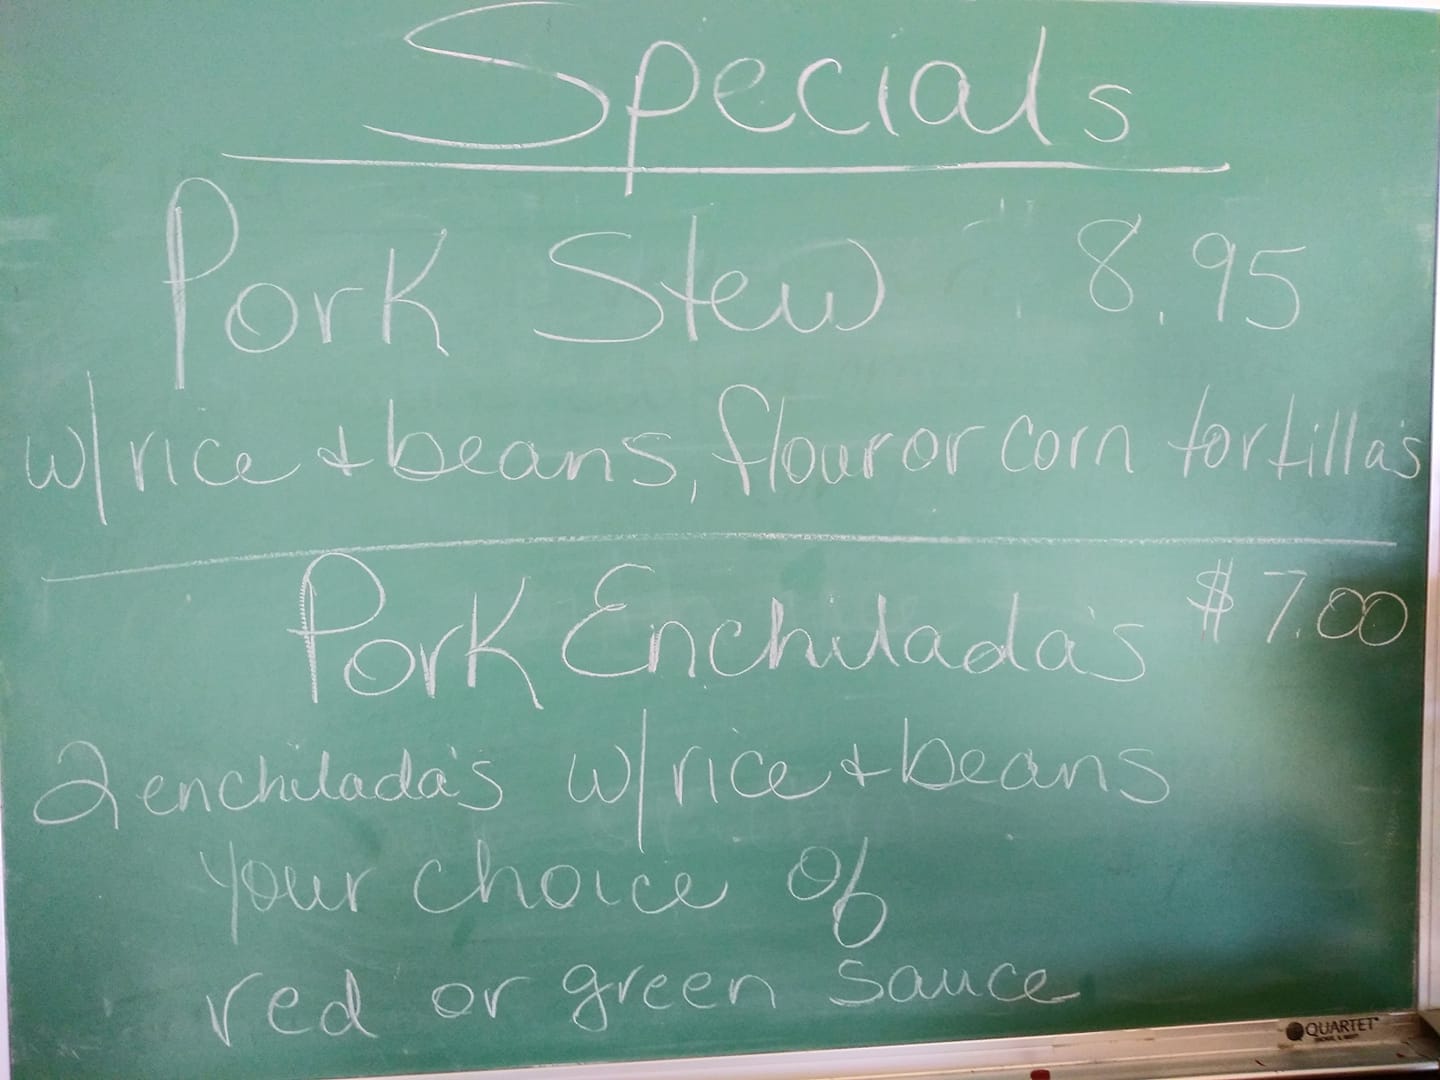 Specials
Pork Stew 8.95
w/rice + beans, flour or corn tortilla's
Pork Enchilada's $7.00
2 enchilada's w/rice + beans
your choice of
red or green sauce
QUARTET